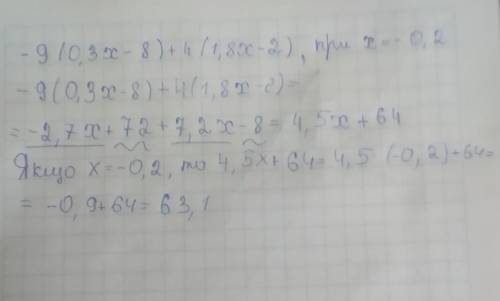 -9(0,3x-8)+4(1,8x-2), при x=-0,2
-9(0,3x-8)+4(1,8x-2)=
=-2,7x+72+7,2x-8=4,5x+64
Якщо x=-0,2, то 4,5x+64=4,5(-0,2)+64=
=-0,9+64=63,1